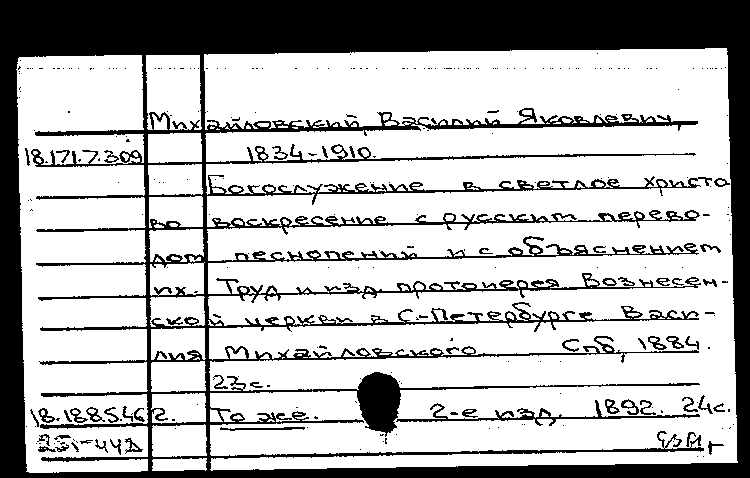 Михайловский, Василий Яковлевич,
18.171.7.309 1834-1910.
Богослужение в светлое христо
во воскресение с русским перево-
дом песнопений и с объяснением
их. Труд и изд. протоиерея Вознесен-
ской церкви в С-Петербурге Васи-
лия Михайловского Спб, 1884.
23с.
18.188.5.46 2. То же. 2-е изд. 1892. 24с.